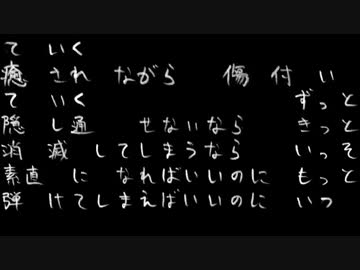 て いく
癒 され ながら 傷 付 い
て いく ずっ と
隠 し通 せないなら きっ と
消 滅 してしまうなら いっ そ
素直 に なればいいのに もっ と
弾 けてしまえばいいのに いつ